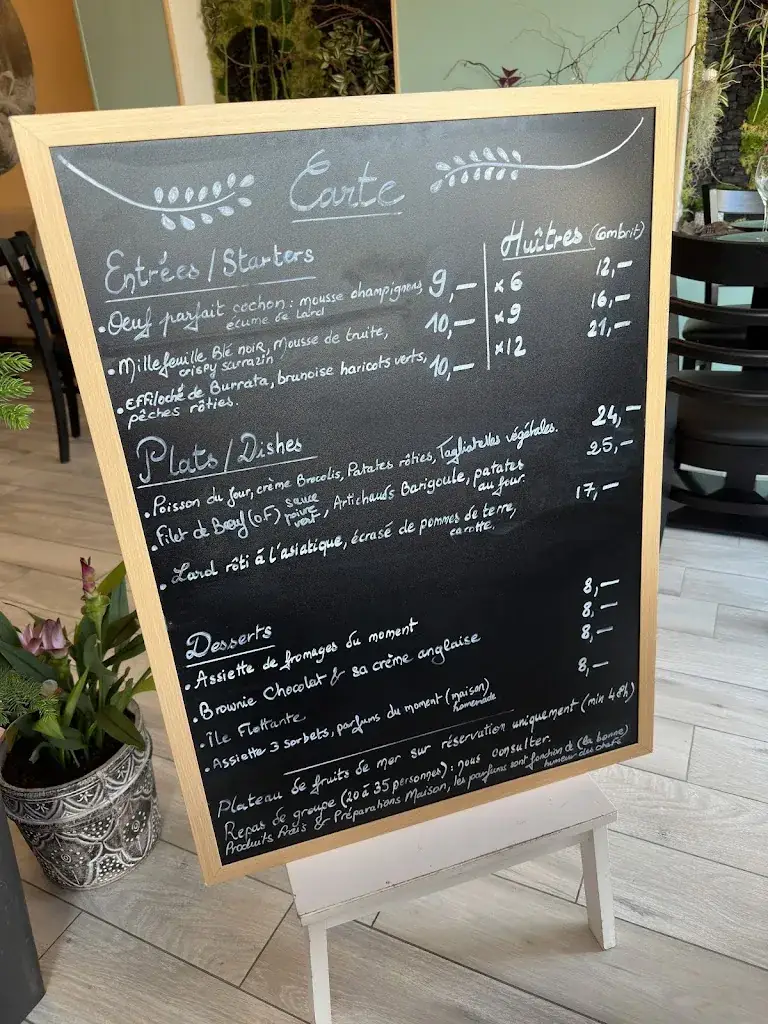 Carte
Entrées / Starters
• Oeuf parfait cochon : mousse champignons, 9,-
écume de lard
• Millefeuille Blé noir, Mousse de truite, 10,-
crispy sarrazin
• Effiloché de Burrata, brunoise haricots verts, 10,-
pêches rôties.
Huîtres (Combrit)
x 6 12,-
x 9 16,-
x 12 21,-
Plats / Dishes
• Poisson du four, crème Brocolis, Patates rôties, Tagliatelles végétales. 24,-
• Filet de Bœuf (O.F) sauce poivre vert, Artichauts Barigoule, patates au four. 25,-
• Lard rôti à l'asiatique, écrasé de pommes de terre, 17,-
carotte.
Desserts
• Assiette de fromages du moment 8,-
• Brownie Chocolat & sa crème anglaise 8,-
• Île Flottante 8,-
• Assiette 3 sorbets, parfums du moment (maison) 8,-
homemade
Plateau de fruits de mer sur réservation uniquement (min 48h)
Repas de groupe (20 à 35 personnes) : nous consulter.
Produits frais & Préparations Maison, les parfums sont fonction de (la bonne)
humeur du chef